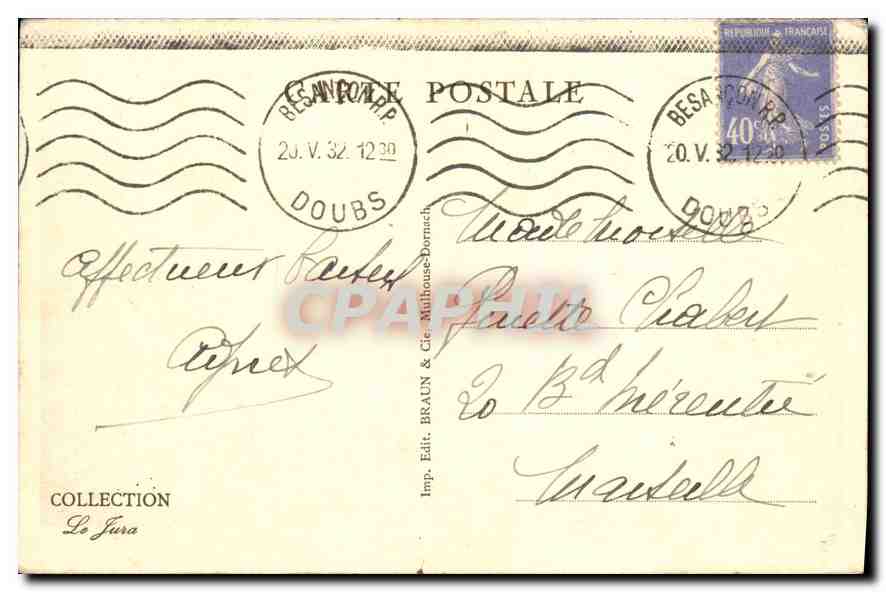 CARTE POSTALE
BESANÇON R.P.
20.V.32.12 30
DOUBS
BESANÇON R.P.
20.V.32.12 30
DOUBS
REPUBLIQUE FRANÇAISE
40 c
POSTES
Affectueux baisers
Mademoiselle
Ginette Chabert
20 Bd Mérentié
Marseille
Imp. Edit. BRAUN & Cie, Mulhouse-Dornach.
COLLECTION
Le Jura
CPAPHIL